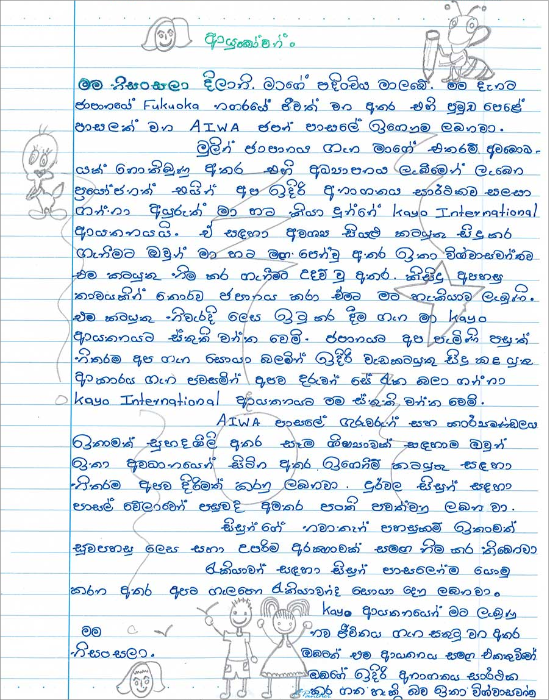 ආයුබෝවන්.
මම නිසංසලා දිලානි. මාගේ පදිංචිය මාලබේ. මම දැනට
ජපානයේ Fukuoka නගරයේ ජීවත් වන අතර එහි ප්‍රමුඛ පෙළේ
පාසලක් වන AIWA ජපන් පාසලේ ඉගෙනුම ලබනවා.
මුලින් ජපානය ගැන මාගේ එතරම් අවබෝධ-
යක් නොතිබුණ අතර එහි අධ්‍යාපනය ලැබීමෙන් ලැබෙන
ප්‍රයෝජනත් එයින් අප ඉදිරි අනාගතය සාර්ථකව සලසා
ගන්නා අයුරුත් මා හට කියා දුන්නේ Kayo International
ආයතනයයි. ඒ සඳහා අවශ්‍ය සියළු කටයුතු සිදු කර
ගැනීමට ඔවුන් මා හට මඟ පෙන්වූ අතර ඉතා විශ්වාසවන්තව
එම කටයුතු නිම කර ගැනීමට උදව් වූ අතර. කිසිදු අපහසු
තාවයකින් තොරව ජපානය කරා ඒමට මට හැකියාව ලැබුණි.
එම කටයුතු නිවැරදි ලෙස ඉටු කර දීම ගැන මා Kayo
ආයතනයට ස්තුති වන්ත වෙමි. ජපානයට අප පැමිණි පසුත්
නිතරම අප ගැන සොයා බලමින් ඉදිරි වැඩකටයුතු සිදු කළ යුතු
ආකාරය ගැන පවසමින් අපව දරුවන් සේ රැක බලා ගන්නා
Kayo International ආයතනයට මම ස්තුති වන්ත වෙමි.
AIWA පාසලේ ගුරුවරුන් සහ කාර්යමණ්ඩලය
ඉතාමත් සුහදශීලී අතර සෑම ශිෂ්‍යාවක් සඳහාම ඔවුන්
ඉතා අවධානයෙන් සිටින අතර ඉගෙනීම් කටයුතු සඳහා
නිතරම අපව දිරිමත් කරනු ලබනවා. දුර්වල සිසුන් සඳහා
පාසල් වේලාවෙන් පසුවද අමතර පන්ති පවත්වනු ලබන වා.
සිසුන්ගේ නවාතැන් පහසුකම් ඉතාමත්
සුවපහසු ලෙස සහා උපරිම ආරක්ෂාවක් සමඟ නිම කර තිබෙනවා
රැකියාවන් සඳහා සිසුන් පාසලෙන්ම යොමු
කරන අතර අපට ගැලපෙන රැකියාවන්ද සොයා දෙනු ලබනවා.
Kayo ආයතනයෙන් මට ලැබුණු
මම නව ජීවිතය ගැන සතුටු වන අතර
නිසංසලා. ඔබටත් එම ආයතනය සමඟ එකතුවීමෙන්
ඔබගේ ඉදිරි අනාගතය සාර්ථක
කර ගත හැකි බව ඉතා විශ්වාසවන්ත